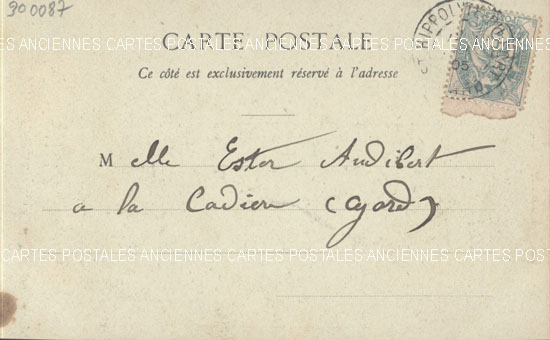 900087
CARTES POSTALES ANCIENNES CARTES POSTALES ANCIENNES CARTES POSTALES ANCIENNES
CARTE POSTALE
Ce côté est exclusivement réservé à l'adresse
Melle Ester Audibert
a la Cadière (Gard)
CARTES POSTALES ANCIENNES CARTES POSTALES ANCIENNES CARTES POSTALES ANCIENNES